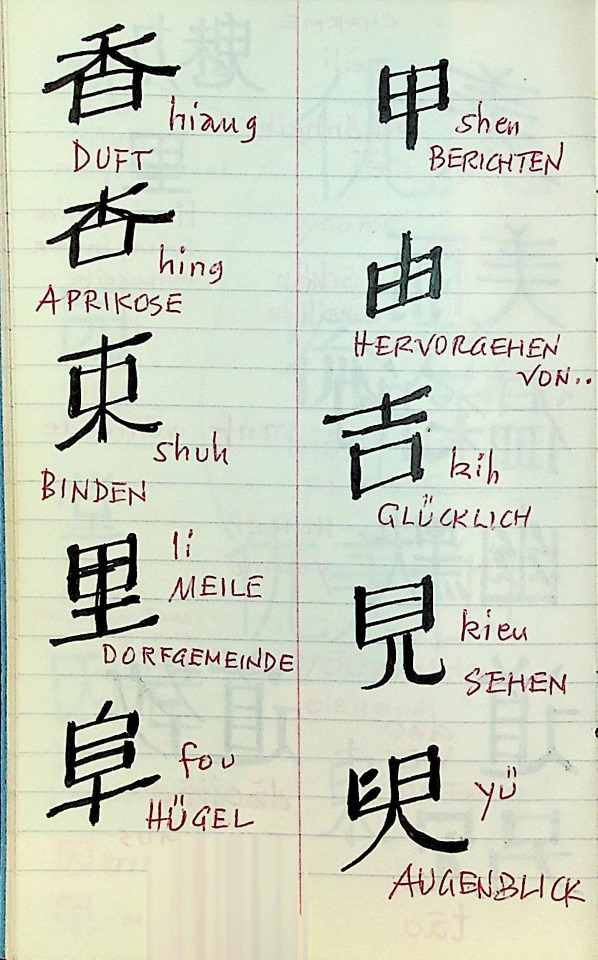 香 hiang
DUFT
杏 hing
APRIKOSE
束 shuh
BINDEN
里 li
MEILE
DORFGEMEINDE
阜 fou
HÜGEL
申 shen
BERICHTEN
由
HERVORGEHEN
VON..
吉 kih
GLÜCKLICH
見 kien
SEHEN
臾 yü
AUGENBLICK